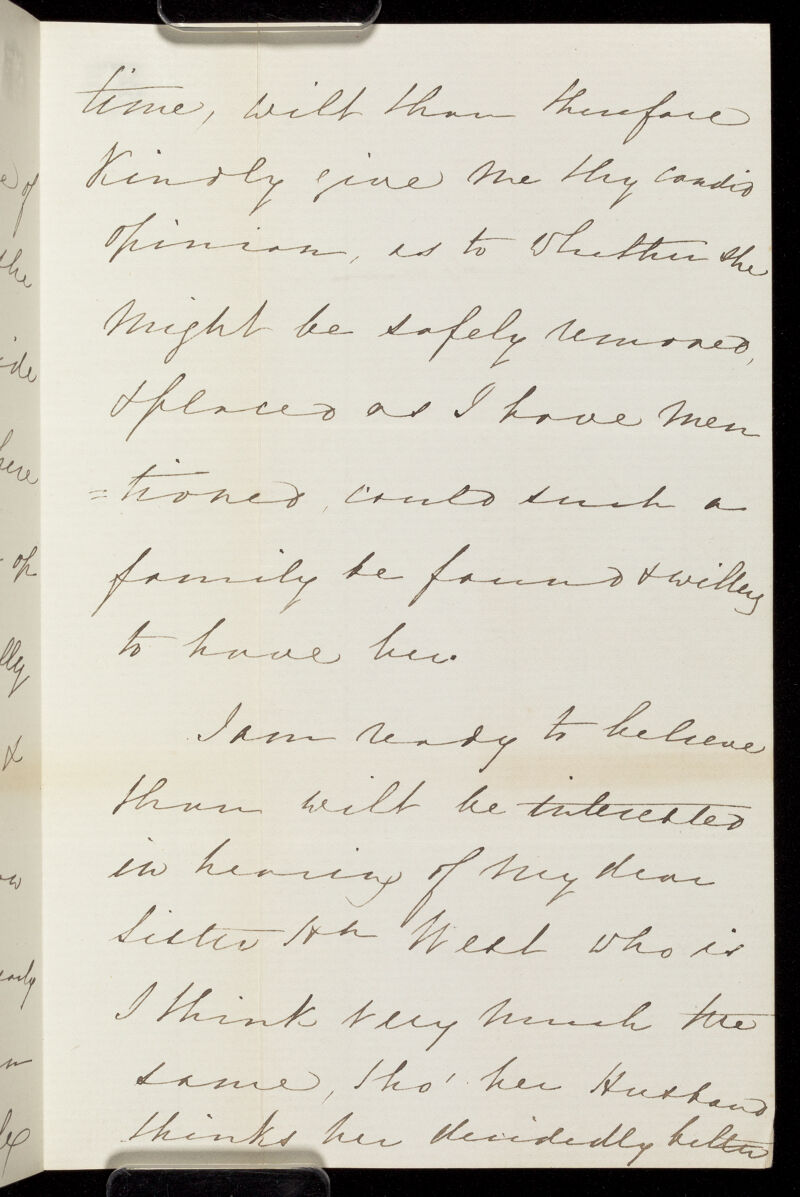 time, wilt thou therefore
Kindly give me thy candid
opinion, as to whether she
Might be safely removed,
& placed as I have Men
=tioned, could such a
family be found & willing
to have her.
I am ready to believe
thou wilt be interested
in hearing of My dear
Sister Hh West who is
I think very much the
same, tho' her Husband
thinks her decidedly better
e of
the
ide
here
op
lly
&
ow